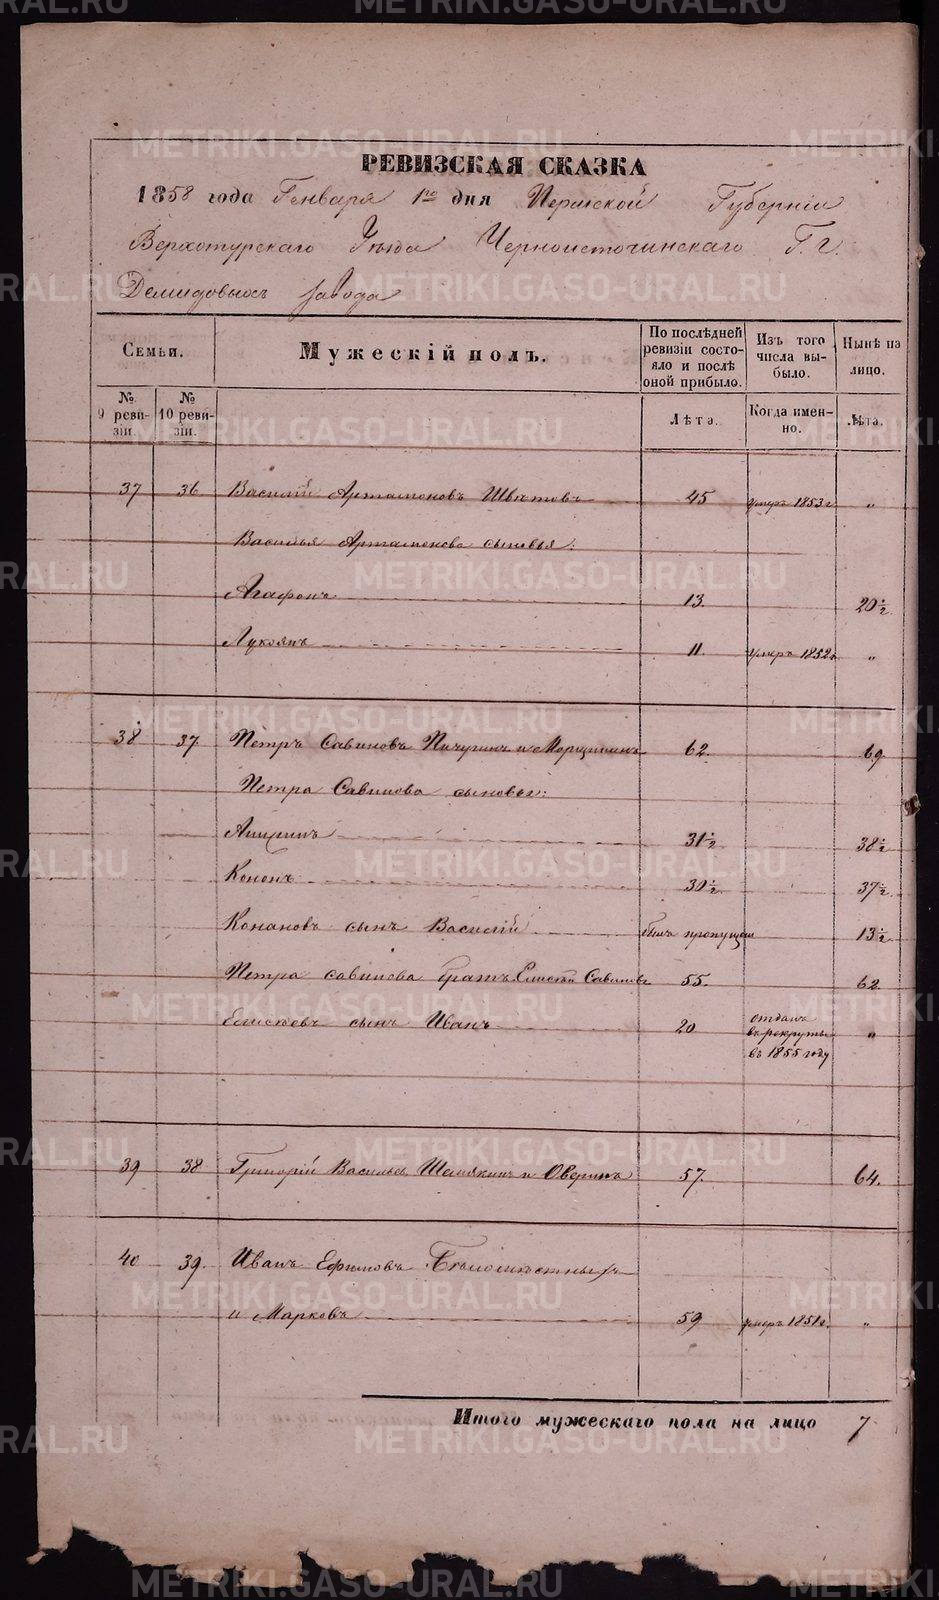 РЕВИЗСКАЯ СКАЗКА
1858 года Генваря 1го дня Пермской Губерніи
Верхотурскаго Уѣзда Черноисточинскаго Г. г.
Демидовыхъ завода
Семьи.
Мужескій полъ.
По послѣдней ревизіи состояло и послѣ оной прибыло.
Изъ того числа выбыло.
Нынѣ на лицо.
№ 9 ревизіи.
№ 10 ревизіи.
Лѣта.
Когда именно.
Лѣта.
37 36 Василій Артамоновъ Швѣтовъ 45 умеръ 1853 г „
Василья Артамонова сыновья:
Агафонъ 13. 20½
Лукоянъ 11. умеръ 1852 г „
38 37. Петръ Савиновъ Пичугинъ и Морщининъ 62. 69.
Петра Савинова сыновья:
31½ 38½
Кононъ 30½ 37½
Кононовъ сынъ Василій былъ пропущен 13½
Петра Савинова братъ Елисѣй Савиновъ 55. 62
Елисѣевъ сынъ Иванъ 20 отданъ въ рекруты въ 1855 году „
39 38 Григорій Васильевъ Шемякинъ и Оверинъ 57. 64.
40 39. Иванъ Ефимовъ Бѣломѣстныхъ
и Марковъ 59 умеръ 1851 г. „
Итого мужескаго пола на лицо 7
METRIKI.GASO-URAL.RU